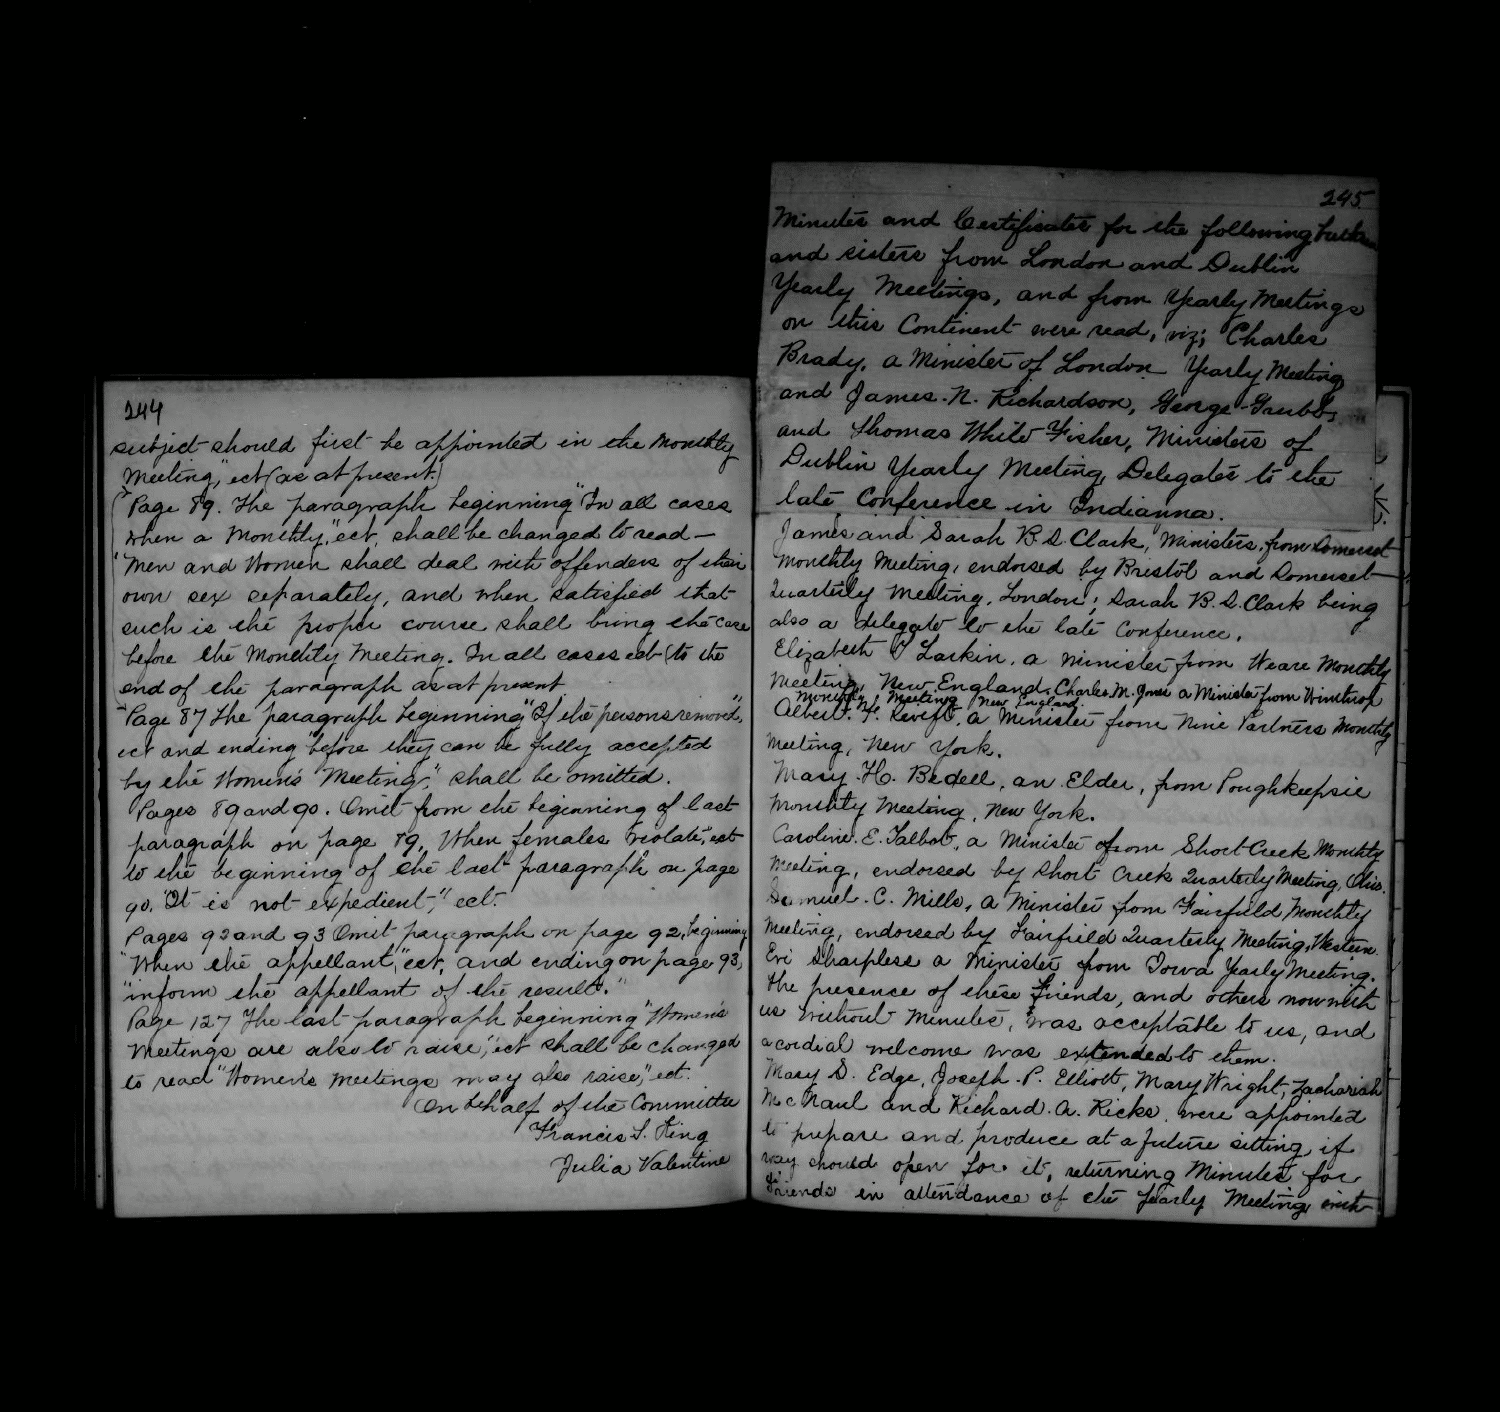 244
subject should first be appointed in the Monthly
Meeting," ect (as at present.)
"Page 89. The paragraph beginning "In all cases
when a Monthly," ect, shall be changed to read—
"Men and Women shall deal with offenders of their
own sex separately, and when satisfied that
such is the proper course shall bring the case
before the Monthly Meeting. In all cases ect (to the
end of the paragraph as at present
"Page 87 The paragraph beginning "If the persons removed,"
ect and ending "before they can be fully accepted
by the Women's Meeting," shall be omitted.
Pages 89 and 90. Omit from the beginning of last
paragraph on page 89, "When females violate," ect
to the beginning of the last paragraph on page
90. "It is not expedient," ect.
Pages 92 and 93 Omit paragraph on page 92, beginning
"When the appellant," ect, and ending on page 93,
"inform the appellant of the result."
Page 127 The last paragraph beginning "Women's
Meetings are also to raise," ect shall be changed
to read "Women's Meetings may also raise," ect.
On behalf of the Committee
Francis T. King
Julia Valentine
245
Minutes and Certificates for the following
and sisters from London and Dublin
Yearly Meetings, and from Yearly Meetings
on this Continent were read, viz; Charles
Brady, a Minister of London Yearly Meeting
and James N. Richardson, George Grubb,
and Thomas White Fisher, Ministers of
Dublin Yearly Meeting, Delegates to the
late Conference in Indianna.
James and Sarah B. S Clark, Ministers, from Somerset
Monthly Meeting, endorsed by Bristol and Somerset
Quarterly Meeting, London; Sarah B. S. Clark being
also a delegate to the late Conference.
Elizabeth Larkin, a Minister from Weare Monthly
Meeting, New England. Charles M. Jones a Minister from Winthrop
Monthly Meeting New England.
Albert, a Minister from Nine Partners Monthly
Meeting, New York.
Mary H. Bedell, an Elder, from Poughkeepsie
Monthly Meeting, New York.
Caroline E. Talbot, a Minister from Short Creek Monthly
Meeting, endorsed by Short Creek Quarterly Meeting, Ohio.
Samuel C. Mills, a Minister from Fairfield Monthly
Meeting, endorsed by Fairfield Quarterly Meeting, Western.
Evi Sharpless a Minister from Iowa Yearly Meeting.
The presence of these Friends, and others now with
us without Minutes, was acceptable to us, and
a cordial welcome was extended to them.
Mary S. Edge, Joseph P. Elliott, Mary Wright, Zachariah
McNaul and Richard A. Ricks, were appointed
to prepare and produce at a future sitting, if
way should open for it, returning Minutes for
Friends in attendance of the Yearly Meeting with